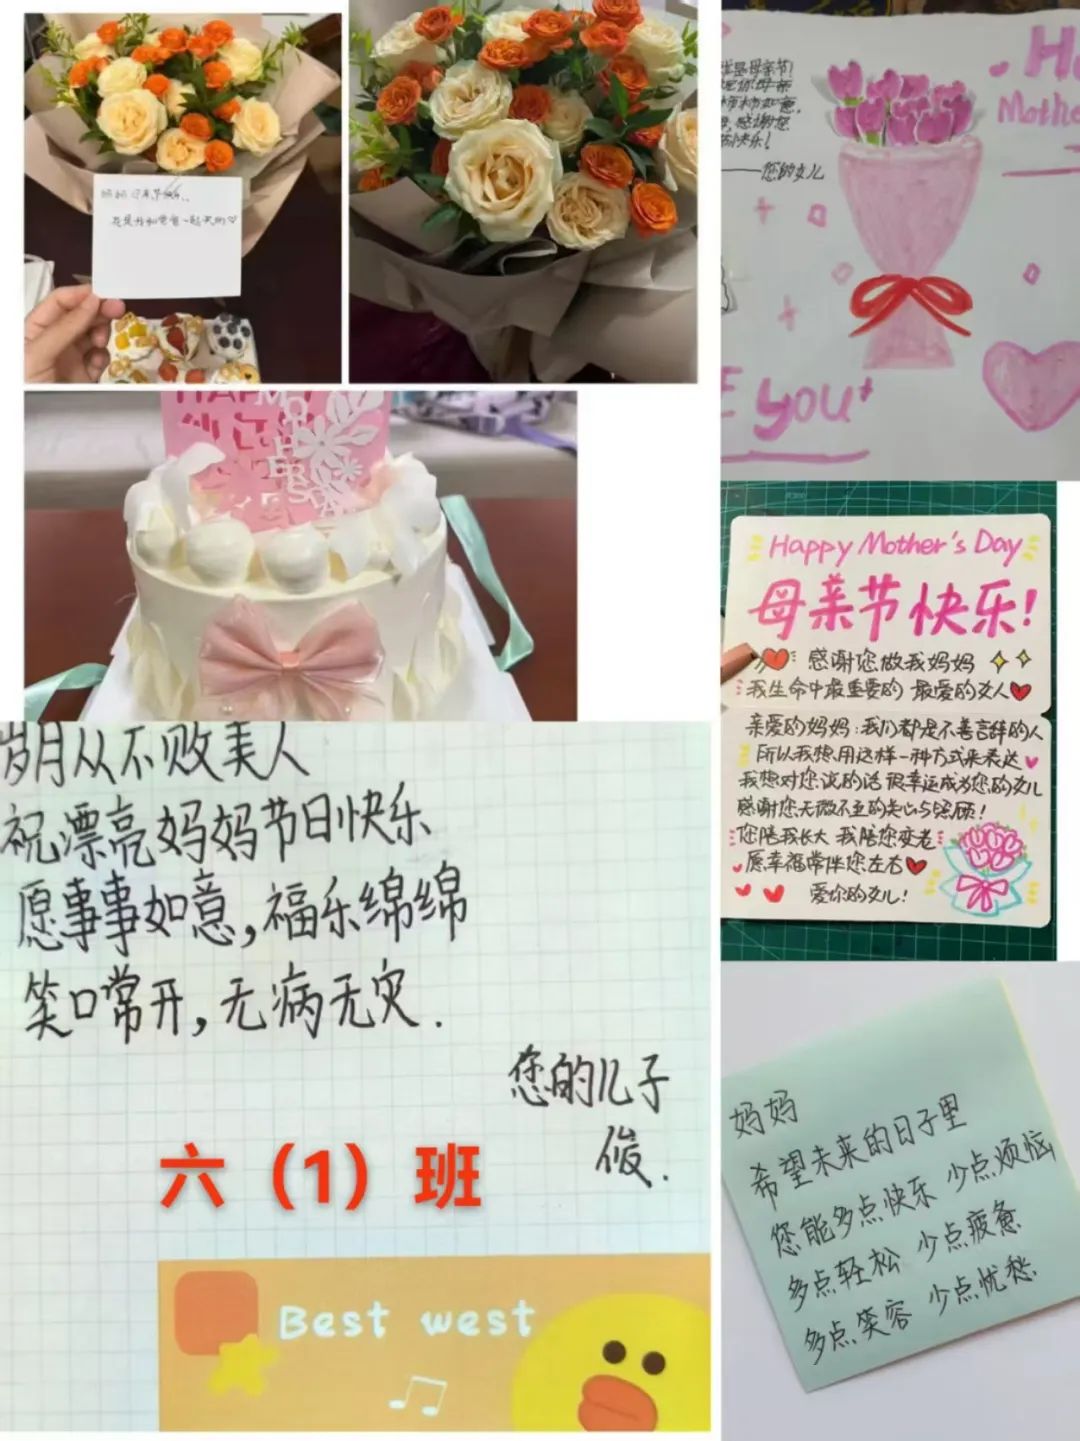 妈妈母亲节快乐..
花是我和爸爸一起买的♡
HAPPY
MOTHERS
是母亲节!
感谢您
节快乐!
——您的女儿
Mothe
E YOU+
Happy Mother's Day
母亲节快乐!
感谢您做我妈妈
我生命中最重要的 最爱的女人
亲爱的妈妈:我们都是不善言辞的人
所以我想用这样一种方式来表达
我想对您说的话 很幸运成为您的女儿
感谢您无微不至的关心与照顾!
您陪我长大 我陪您变老
愿幸福常伴您左右
爱你的女儿!
岁月从不败美人
祝漂亮妈妈节日快乐
愿事事如意,福乐绵绵
笑口常开,无病无灾.
您的儿子
俊.
六（1）班
Best west
妈妈
希望未来的日子里
您能多点快乐 少点烦恼
多点轻松 少点疲惫
多点笑容 少点忧愁